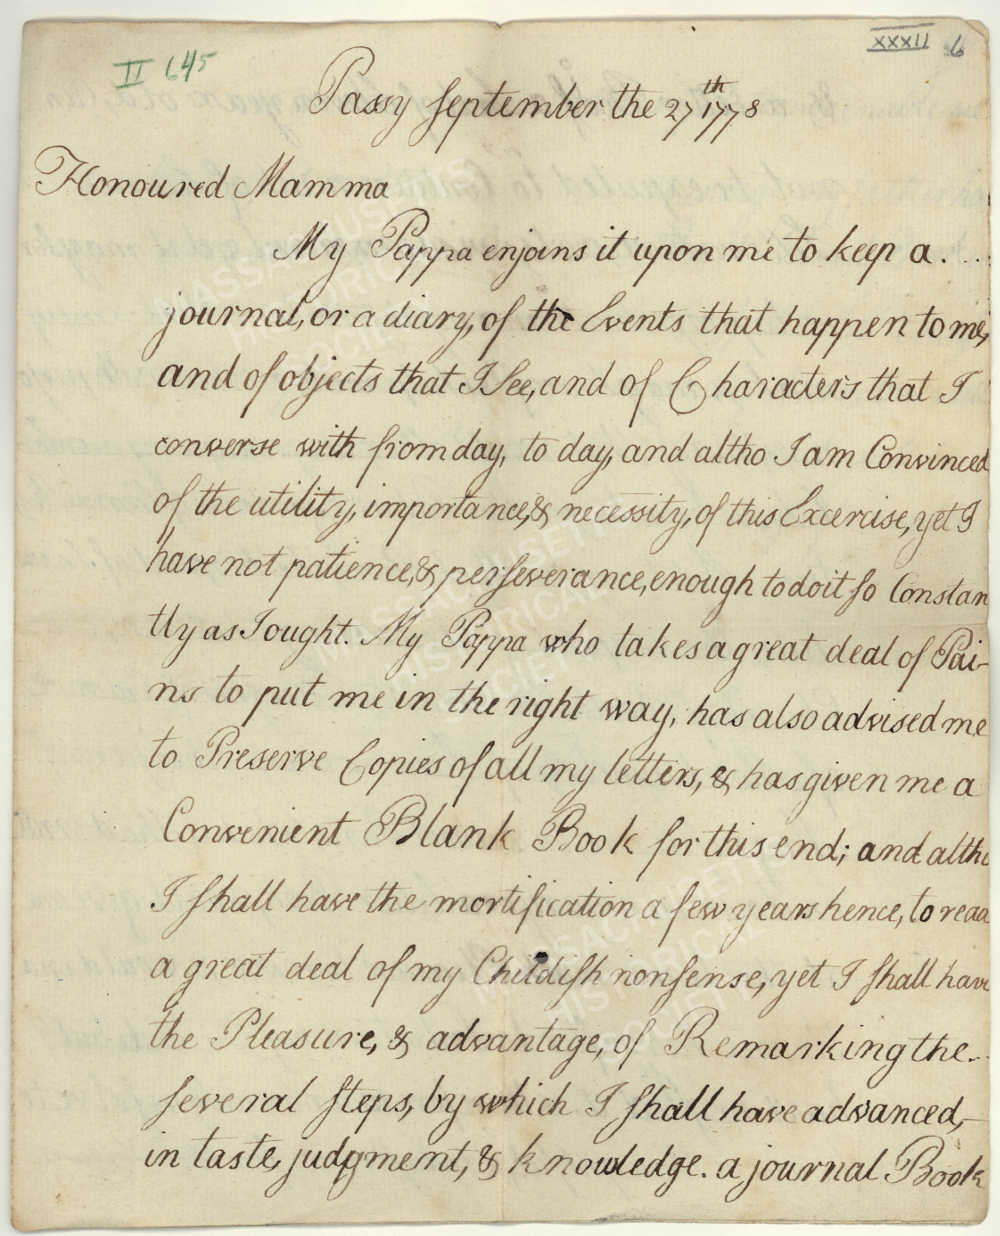 II 645
XXXII 6
Passy September the 27th 1778
Honoured Mamma
My Pappa enjoins it upon me to keep a
journal, or a diary, of the Events that happen to me,
and of objects that I See, and of Characters that I
converse with from day, to day, and altho I am Convinced
of the utility, importance, & necessity, of this Excercise, yet I
have not patience, & perseverance, enough to do it so Constan
tly as I ought. My Pappa who takes a great deal of Pai-
ns to put me in the right way, has also advised me
to Preserve Copies of all my letters, & has given me a
Convenient Blank Book for this end; and altho
I shall have the mortification a few years hence, to read
a great deal of my Childish nonsense, yet I shall have
the Pleasure, & advantage, of Remarking the
several steps, by which I shall have advanced,
in taste, judgment, & knowledge. a journal Book
MASSACHUSETTS
HISTORICAL
SOCIETY
MASSACHUSETTS
HISTORICAL
SOCIETY
MASSACHUSETTS
HISTORICAL
SOCIETY